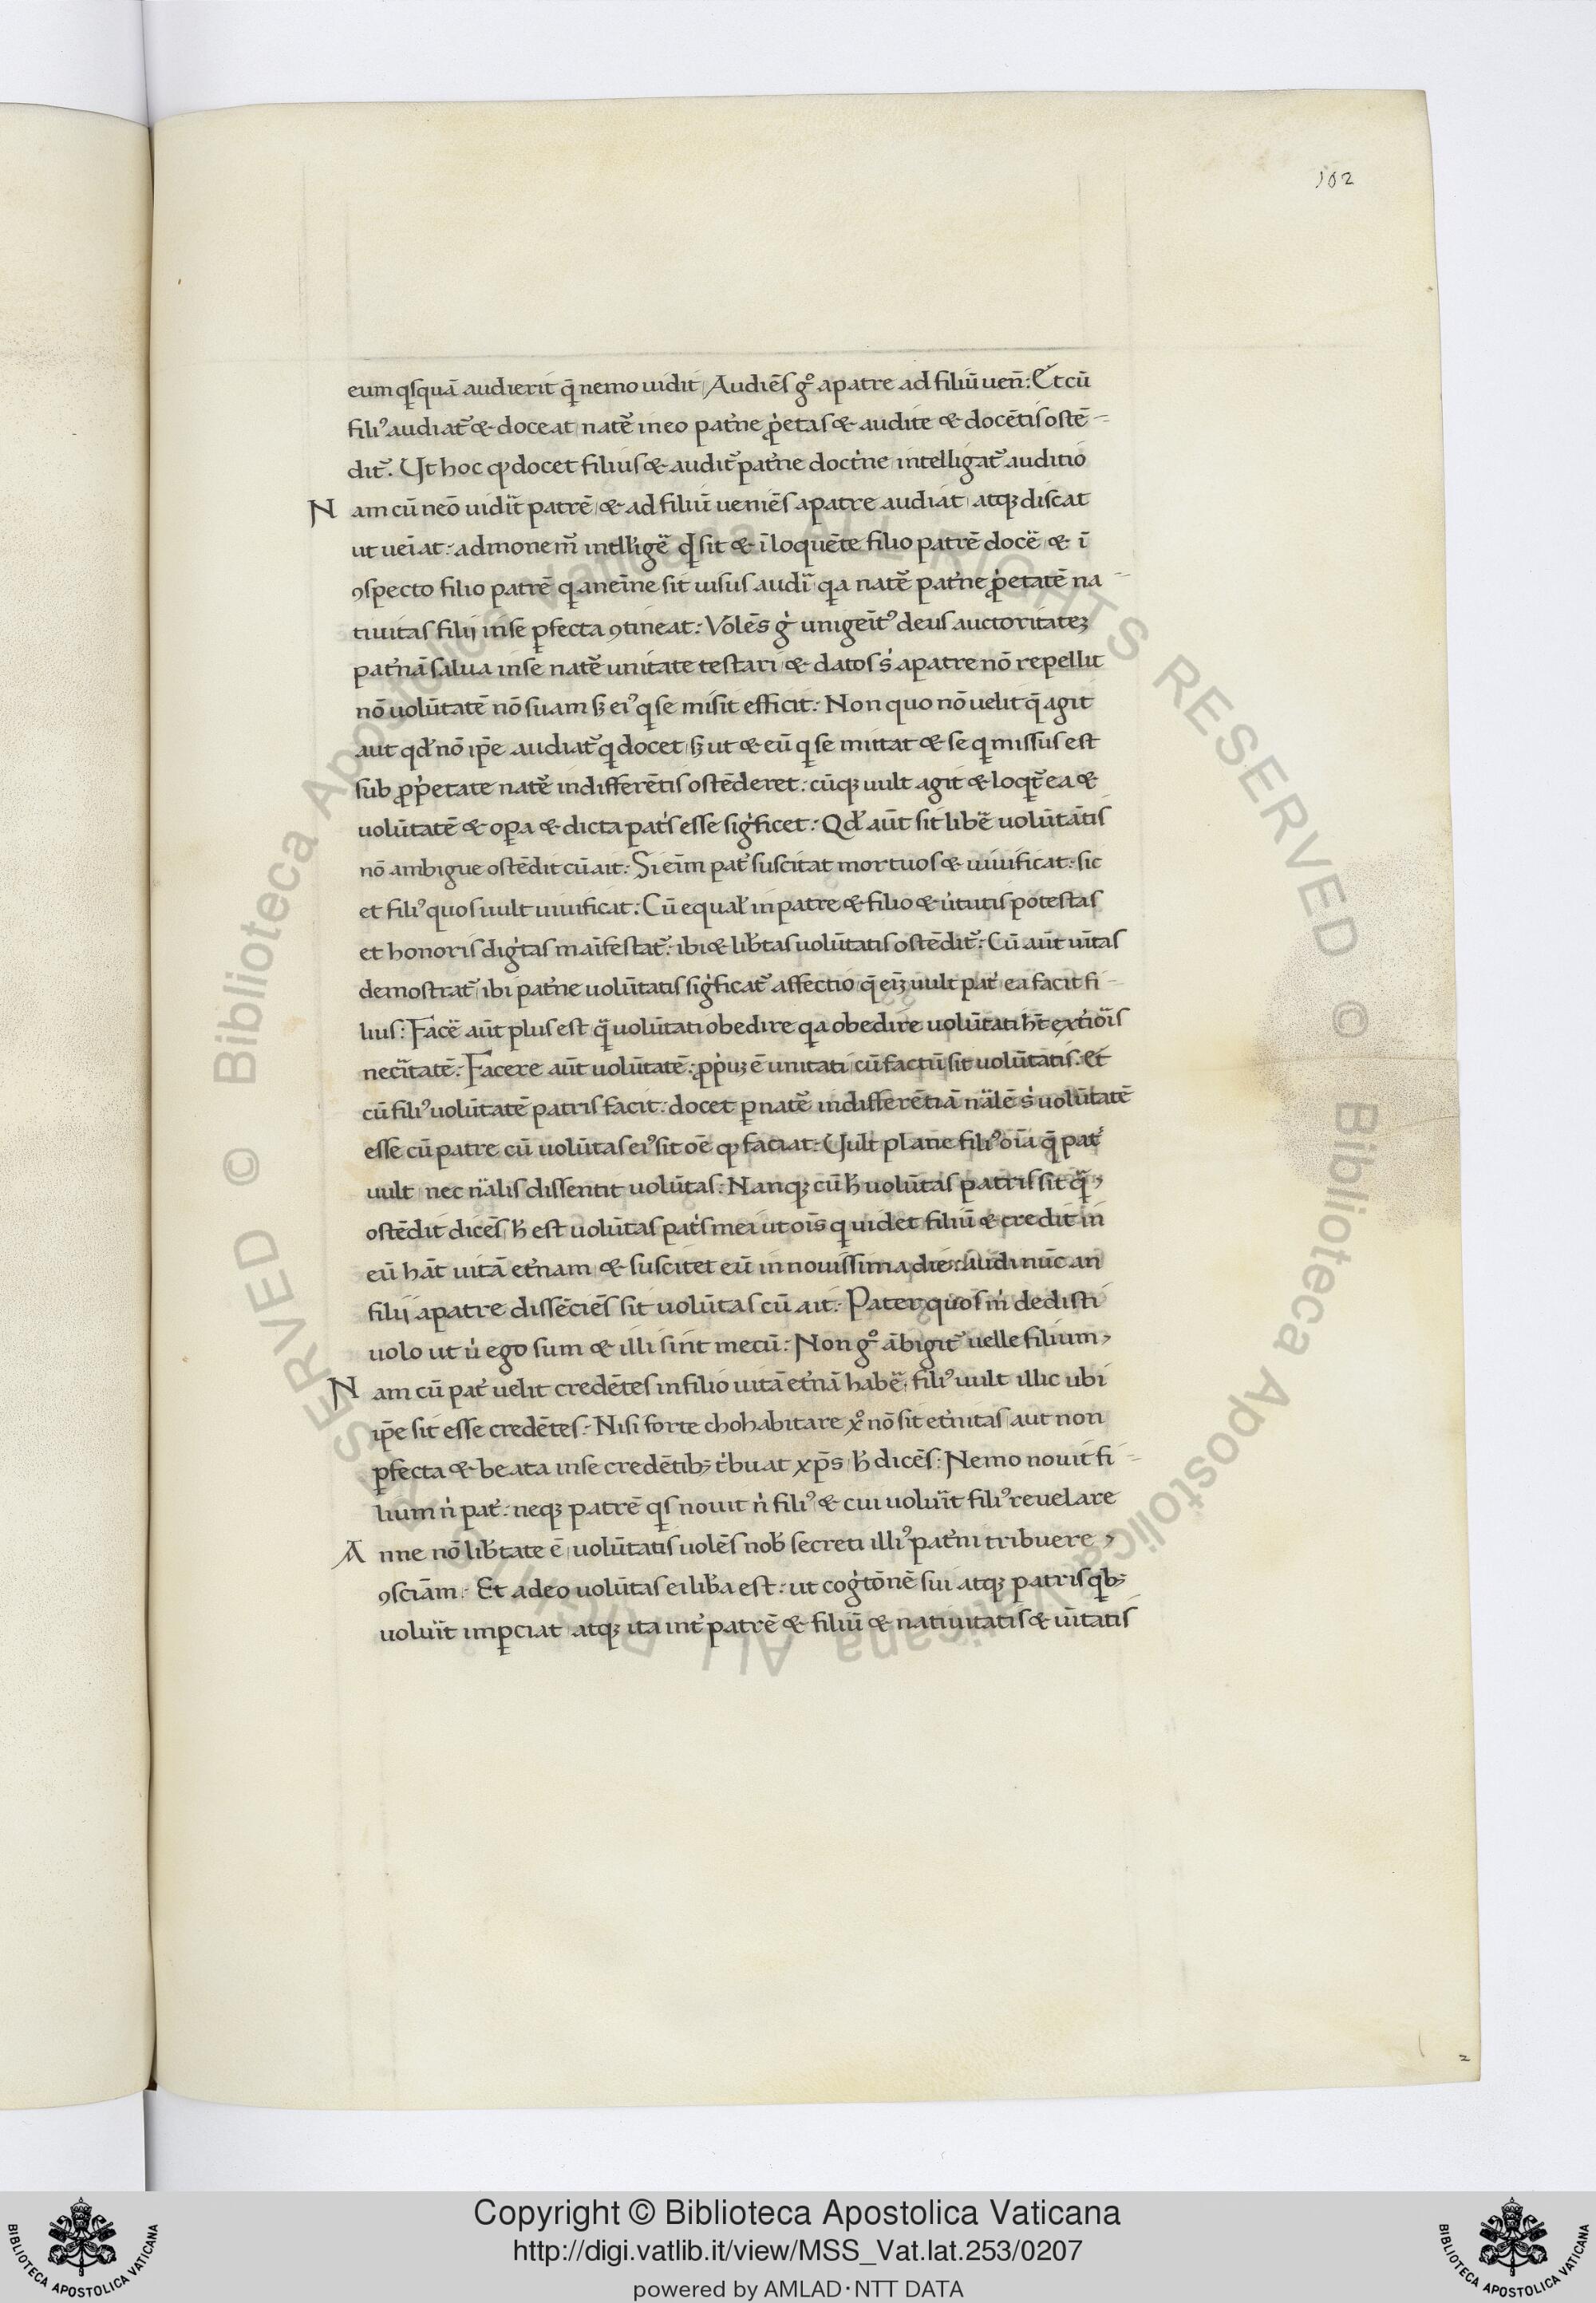 102
eum qsquā audierit q̄ nemo uidit, Audiēs gͦ apatre ad filiū ueñ: Et cū
fili⁹ audiat᷑ & doceat, nat᷑e in eo pat̓ne ꝓp̓etas & audite & docētis ostē-
dit᷑. Ut hoc qꝫ docet filius & audit᷑ pat̓ne doct̓ne intelligat᷑ auditio
Nam cū neō uidit patrē, & ad filiū ueniēs apatre audiat, atqꝫ discat
ut ueīat: admonem̄ intllige᷑ qd sit & ī loquēte filio patrē doce᷑ & ī
ꝯspecto filio patrē q aneīne sit uisus audi᷑ qa nat᷑e pat̓ne ꝓp̓etatē na-
tiuitas filij inse ꝑfecta ꝯtineat: Volēs g̓ unigeīt⁹ deus auctoritateꝫ
pat̓nā salua inse nat᷑e unitate testari & datos s̓ apatre nō repellit
nō uolūtatē nō suam sꝫ ei⁹ q se misit efficit: Non quo nō uelit q̄ agit
aut qd̓ nō ip̄e audiat᷑ q docet, sꝫ ut & eū q se mittat & se q missus est
sub ꝓp̓etate nat᷑e indifferētis ostēderet: cūqꝫ uult agit & loqt᷑ ea &
uolūtatē & oꝑa & dicta pat̓s esse sig̓ficet: Qd̓ aūt sit libe᷑ uolūtātis
nō ambigue ostēdit cū ait: Si eīm pat̓ suscitat mortuos & uiuificat: sic
et fili⁹ quos uult uiuificat: Cū equal̓ in patre & filio & u̓tutis potestas
et honoris dig̓tas maīfestat᷑: ibi & lib̓tas uolūtatis ostēdit᷑: Cū aūt uītas
demostrat᷑, ibi pat̓ne uolūtatis sig̓ficat᷑ affectio, q̄ eīꝫ uult pat̓ ea facit fi-
lius: Face᷑ aūt plus est q᷑ uolūtati obedire qa obedire uolūtati h̄t ext̓io᷑is
neci᷑tatē: Facere aūt uolūtatē: ꝓp̓uꝫ ē unitati, cū factū sit uolūtatis. Et
cū fili⁹ uolūtatē patris facit: docet ꝑ nat᷑e indifferētiā na᷑lē s̓ uolūtatē
esse cū patre cū uolūtas ei⁹ sit oē qꝫ faciat: Uult plane fili⁹ oīa q̄ pat̓
uult, nec na᷑lis dissentit uolūtas: Nanqꝫ cū h̓ uolūtas patris sit q᷑,
ostēdit dicēs, h̓ est uolūtas pat̓s mei ut oīs q uidet filiū & credit in
eū hāt uitā et̓nam & suscitet eū in nouissima die: audi nūc an
filij apatre dissēciēs sit uolūtas cū ait: Pater quos m̓ dedisti
uolo ut u̓ ego sum & illi sint mecū: Non gͦ ābigit᷑ uelle filium,
Nam cū pat̓ uelit credētes in filio uitā et̓nā habe᷑, fili⁹ uult illic ubi
ip̄e sit esse credētes: Nisi forte chohabitare xͦ nō sit et̓nitas, aut non
ꝑfecta & beata inse credētibꝫ t̓buat xp̄s, h̓ dicēs: Nemo nouit fi-
lium n̓ pat̓: neqꝫ patrē qs nouit n̓ fili⁹ & cui uolui᷑t fili⁹ reuelare
Anne nō lib̓tate ē, uolūtatis uolēs nob̓ secreti illi⁹ pat̓ni tribuere,
ꝯsciām: Et adeo uolūtas ei lib̓a est: ut cog̓tōnē sui atqꝫ patris qbꝫ
uolui᷑t imꝑciat, atqꝫ ita int̓ patrē & filiū & natiuitatis & uītatis
Copyright © Biblioteca Apostolica Vaticana
http://digi.vatlib.it/view/MSS_Vat.lat.253/0207
powered by AMLAD·NTT DATA